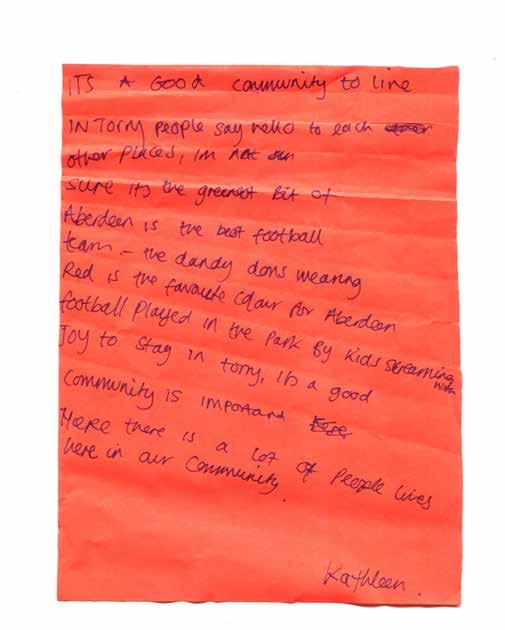 ITS A GOOD community to live
IN Torry people say hello to each
other places, im not
sure its the greenest Bit of
Aberdeen is the best football
team - the dandy dons wearing
Red is the favourite Colour for Aberdeen
football played in the Park By kids screaming with
Joy to stay in torry, its a good
Community is important
Here there is a lot of People lives
here in our Community.
Kathleen.